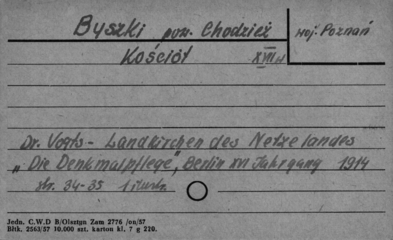 Byszki pow. Chodzież
woj. Poznań
Kościół XVII w
Dr. Vogts - Landkirchen des Netzelandes
„Die Denkmalpflege", Berlin XVI Jahrgang 1914
str. 34-35 1 ilustr.
Jedn. C.W.D B/Olsztyn Zam 2776 /on/57
Błtk. 2563/57 10.000 szt. karton kl. 7 g 210.